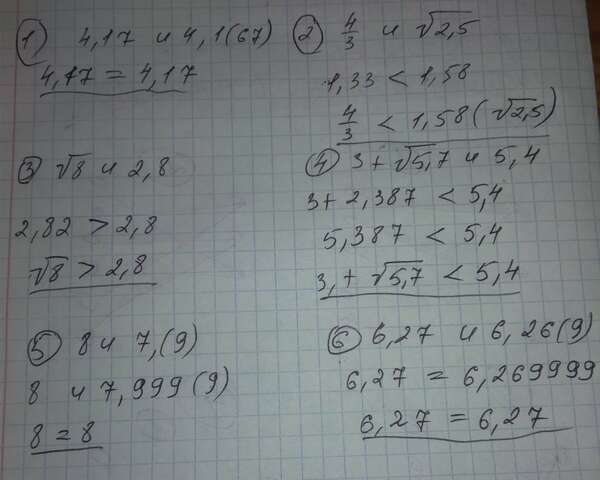 1) 4,17 и 4,1(67)
4,17 = 4,17
2) 4/3 и √2,5
1,33 < 1,58
4/3 < 1,58 (√2,5)
3) √8 и 2,8
2,82 > 2,8
√8 > 2,8
4) 3 + √5,7 и 5,4
3 + 2,387 < 5,4
5,387 < 5,4
3, + √5,7 < 5,4
5) 8 и 7,(9)
8 и 7,999(9)
8 = 8
6) 6,27 и 6,26(9)
6,27 = 6,269999
6,27 = 6,27